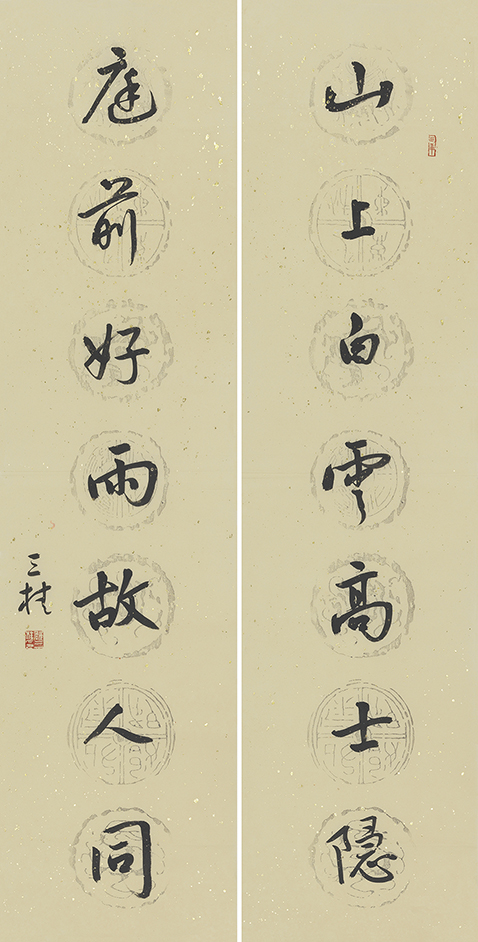 山上白雲高士隱
庭前好雨故人同
三柱